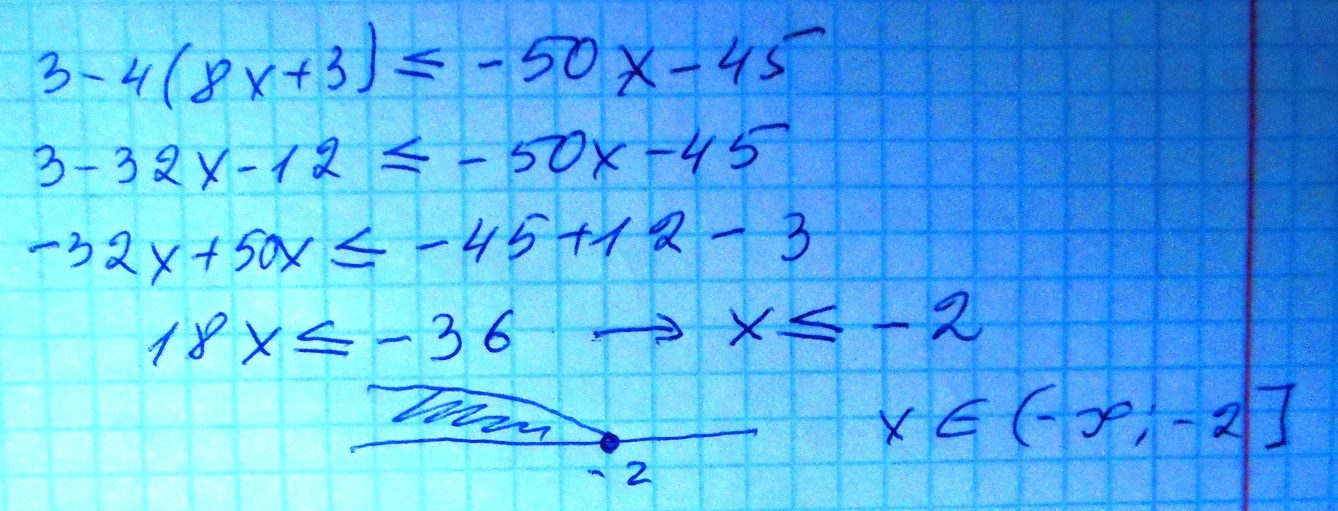 3-4(8x+3) ≤ -50x-45
3-32x-12 ≤ -50x-45
-32x+50x ≤ -45+12-3
18x ≤ -36 → x ≤ -2
x ∈ (-∞; -2]
-2